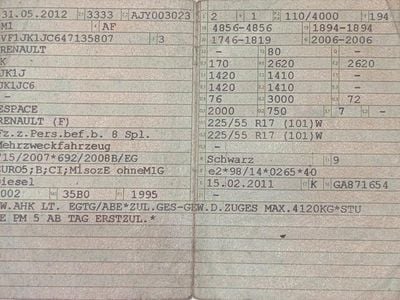 31.05.2012 3333 AJY003023
M1 AF
VF1JK1JC647135807 3
RENAULT
K
JK1J
JK1JC6
-
ESPACE
RENAULT (F)
Fz.z.Pers.bef.b. 8 Spl.
Mehrzweckfahrzeug
715/2007*692/2008B/EG
EURO5;B;CI;M1sozE ohneM1G
Diesel
0002 35B0 1995
W.AHK LT. EGTG/ABE*ZUL.GES-GEW.D.ZUGES MAX.4120KG*STU
E PM 5 AB TAG ERSTZUL.*
2 1 110/4000 194
4856-4856 1894-1894
1746-1819 2006-2006
- 80 -
170 2620 2620
1420 1410 -
1420 1410 -
76 3000 72
2000 750 7 -
225/55 R17 (101)W
225/55 R17 (101)W
-
Schwarz 9
e2*98/14*0265*40
15.02.2011 K GA871654
-